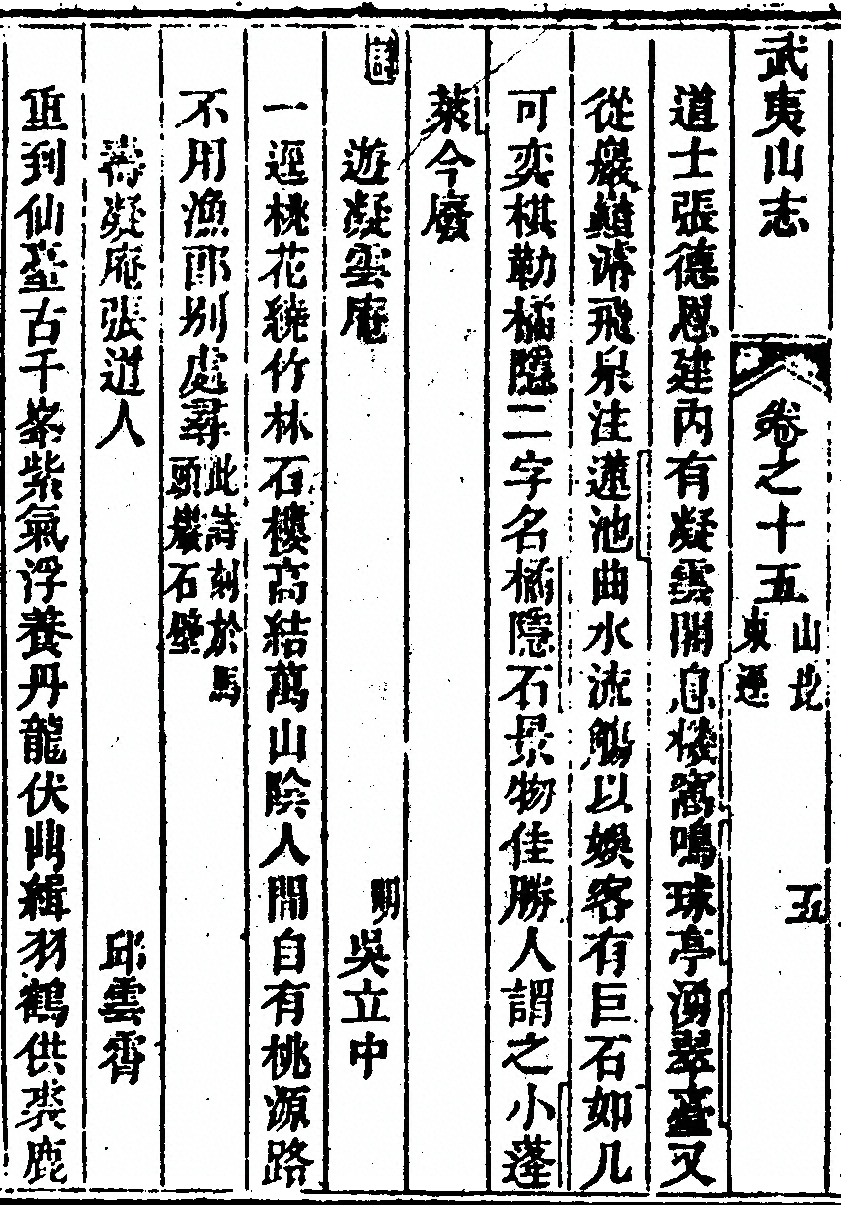 武夷山志 卷之十五 山北東逕 五
道士張德恩建内有凝雲關息機窩鳴球亭湧翠臺又
從巖巔濬飛泉注蓮池曲水流觴以娛客有巨石如几
可奕棋勒橘隱二字名橘隱石景物佳勝人謂之小蓬
萊今廢
詩 遊凝雲庵 明 吳立中
一逕桃花繞竹林石樓高結萬山陰人間自有桃源路
不用漁郎别處尋此詩刻於馬頭巖石壁
凝庵張道人 邱雲霄
重到仙臺古千峯紫氣浮養丹龍伏 緝羽鶴供裘鹿